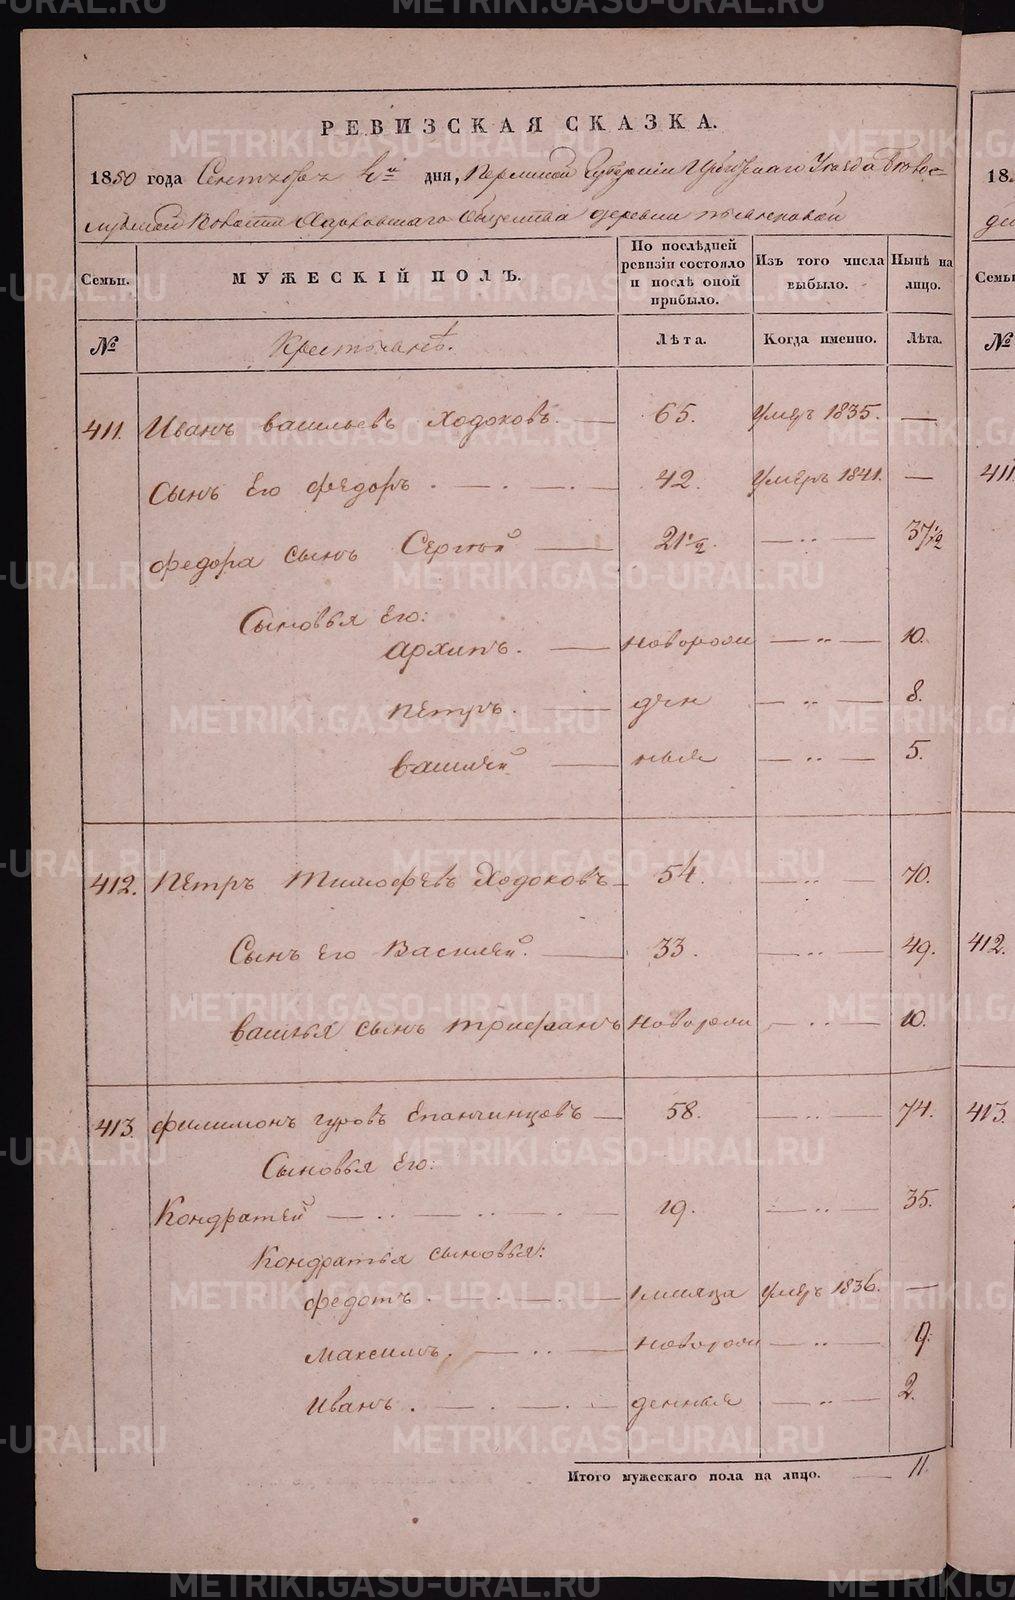 РЕВИЗСКАЯ СКАЗКА.
1850 года Сентября дня, Пермской Губернiи Ирбитскаго Уѣзда
Волости Общества деревни
Семьи. МУЖЕСКIЙ ПОЛЪ. По послѣдней ревизiи состояло и послѣ оной прибыло. Изъ того числа выбыло. Нынѣ на лицо.
№ Крестьянѣ. Лѣта. Когда именно. Лѣта.
411. Иванъ васильевъ Ходоковъ. 65. Умеръ 1835.
Сынъ Его федоръ 42. Умеръ 1841.
федора сынъ Сергѣй 21 1/2. 37 1/2
Сыновья Его:
Архипъ. новорож 10.
Петръ. ден 8.
Василей ныя 5.
412. Петръ Тимофеевъ Ходоковъ 54. 70.
Сынъ Его Василей. 33. 49.
василья сынъ трифанъ новорож 10.
413. филимонъ гуровъ Епанчинцовъ 58. 74.
Сыновья Его:
Кондратей 19. 35.
Кондратья сыновья:
федотъ 1 месяца умеръ 1836.
Максимъ. новорож 9.
Иванъ. денныя 2.
Итого мужескаго пола на лицо. 11.
18
Семьи
№
411
412.
413.
METRIKI.GASO-URAL.RU